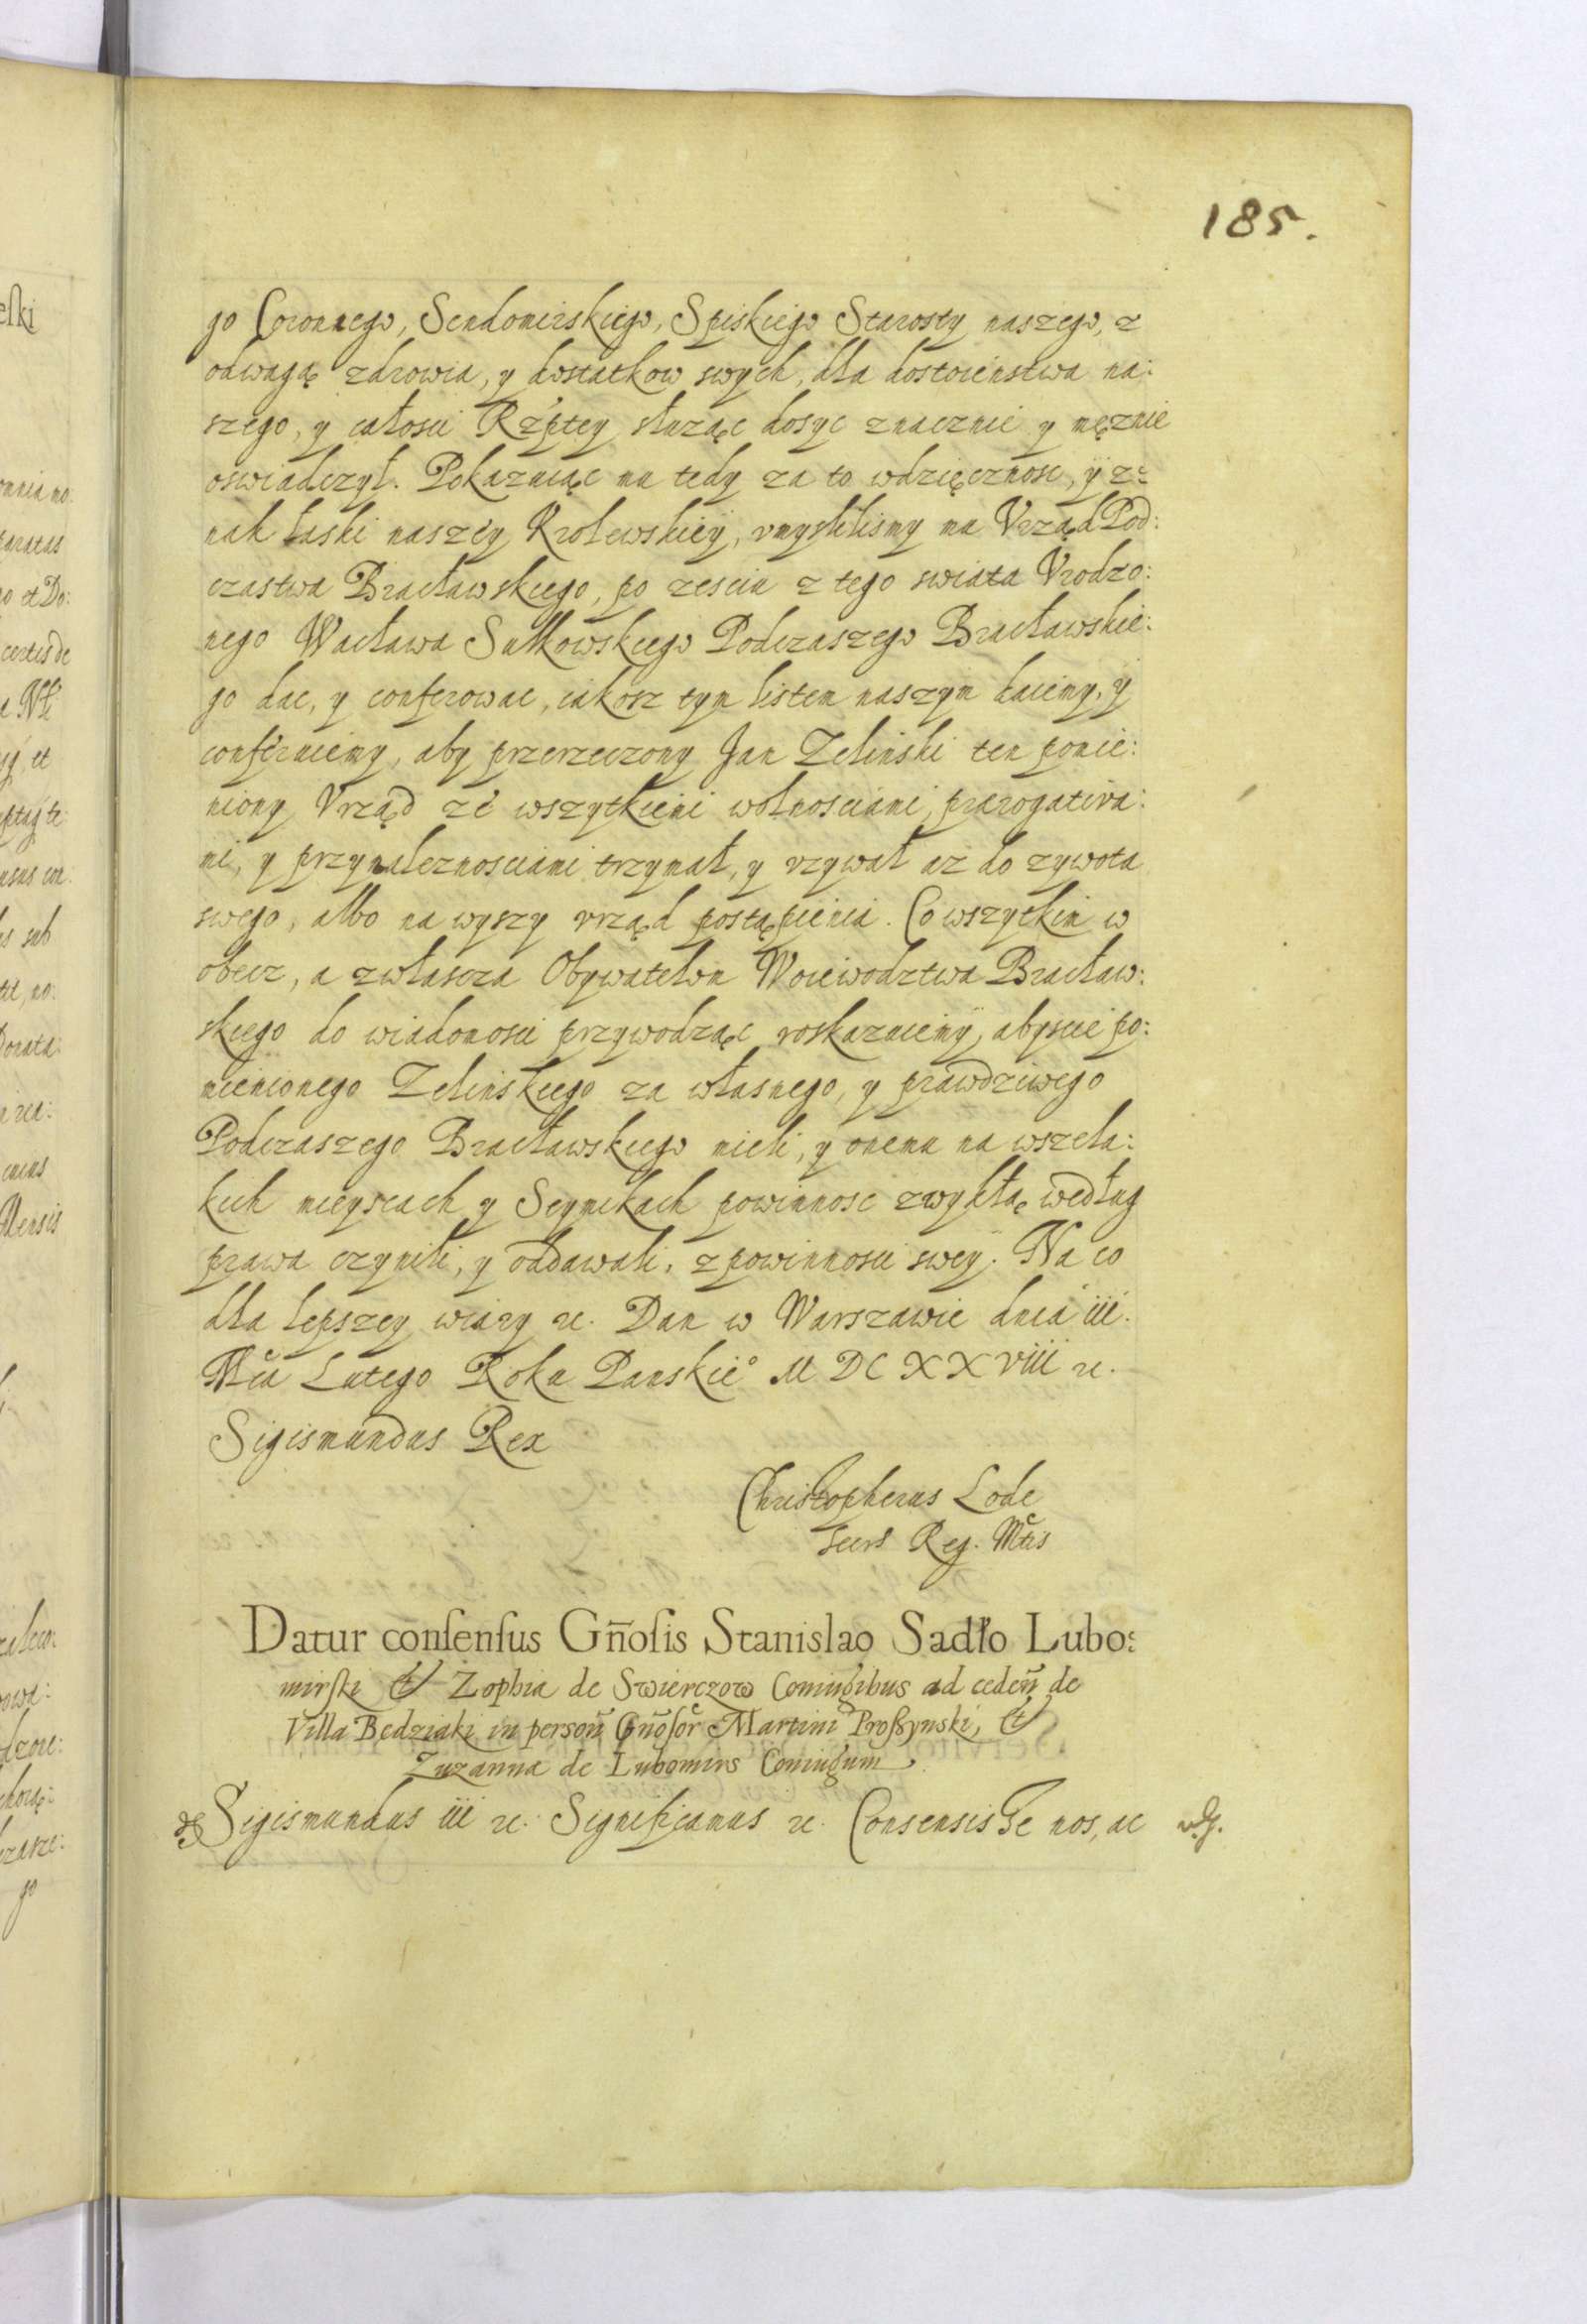 185.
go Coronnego, Sendomirskiego, Spiskiego Starosty naszego, z
odwagą zdrowia, y dostatkow swych, dla dostoienstwa na:
szego, y całosci Rzptey służąc dosyc znacznie y mężnie
oswiadczył. Pokazuiąc mu tedy za to wdzięcznosc, ÿ z:
nak łaski naszey Krolewskieÿ, vmyslilismy mu Vrząd Pod:
czastwa Bracławskiego, po zesciu z tego swiata Vrodzo:
nego Wacława Sułkowskiego Podczaszego Bracławskie:
go dac, y conferowac, iakosz tym listem naszym daiemy, ÿ
conferuiemy, aby przerzeczony Jan Zelinski ten pomie:
niony Vrząd ze wszytkiemi wolnosciami, prærogatiwa:
mi, y przynaleznosciami trzymał, y vzywał az do zywota
swego, albo na wyszy vrząd postąpienia. Co wszytkim w
obecz, a zwłascza Obywatelom Woiewodztwa Bracław:
skiego do wiadomosci przywodząc roskazuiemÿ, abyscie po:
mienionego Zelinskiego za własnego, y prawdziwego
Podczaszego Bracławskiego mieli, y onemu na wszela:
kich mieyscach y Seymikach powinnosc zwykłą według
prawa czynili, y oddawali, z powinnosci swey. Na co
dla lepszey wiary &c. Dan w Warszawie dnia iii.
Mca Lutego Roku Panskie° M DC XXViii &c.
Sigismundus Rex
Christopherus Lode
Secrs Reg. Mtis
Datur consensus Gn̄osis Stanislao Sadło Lubo:
mirski et Zophia de Swierczow Coniugibus ad cedeñ de
Villa Będziaki in persoñ Gñosor Martini Proßynski, et
Zuzanna de Lubomirs Coniugum
Sigismundus iii &c. Significamus &c. Consensisse nos, ac